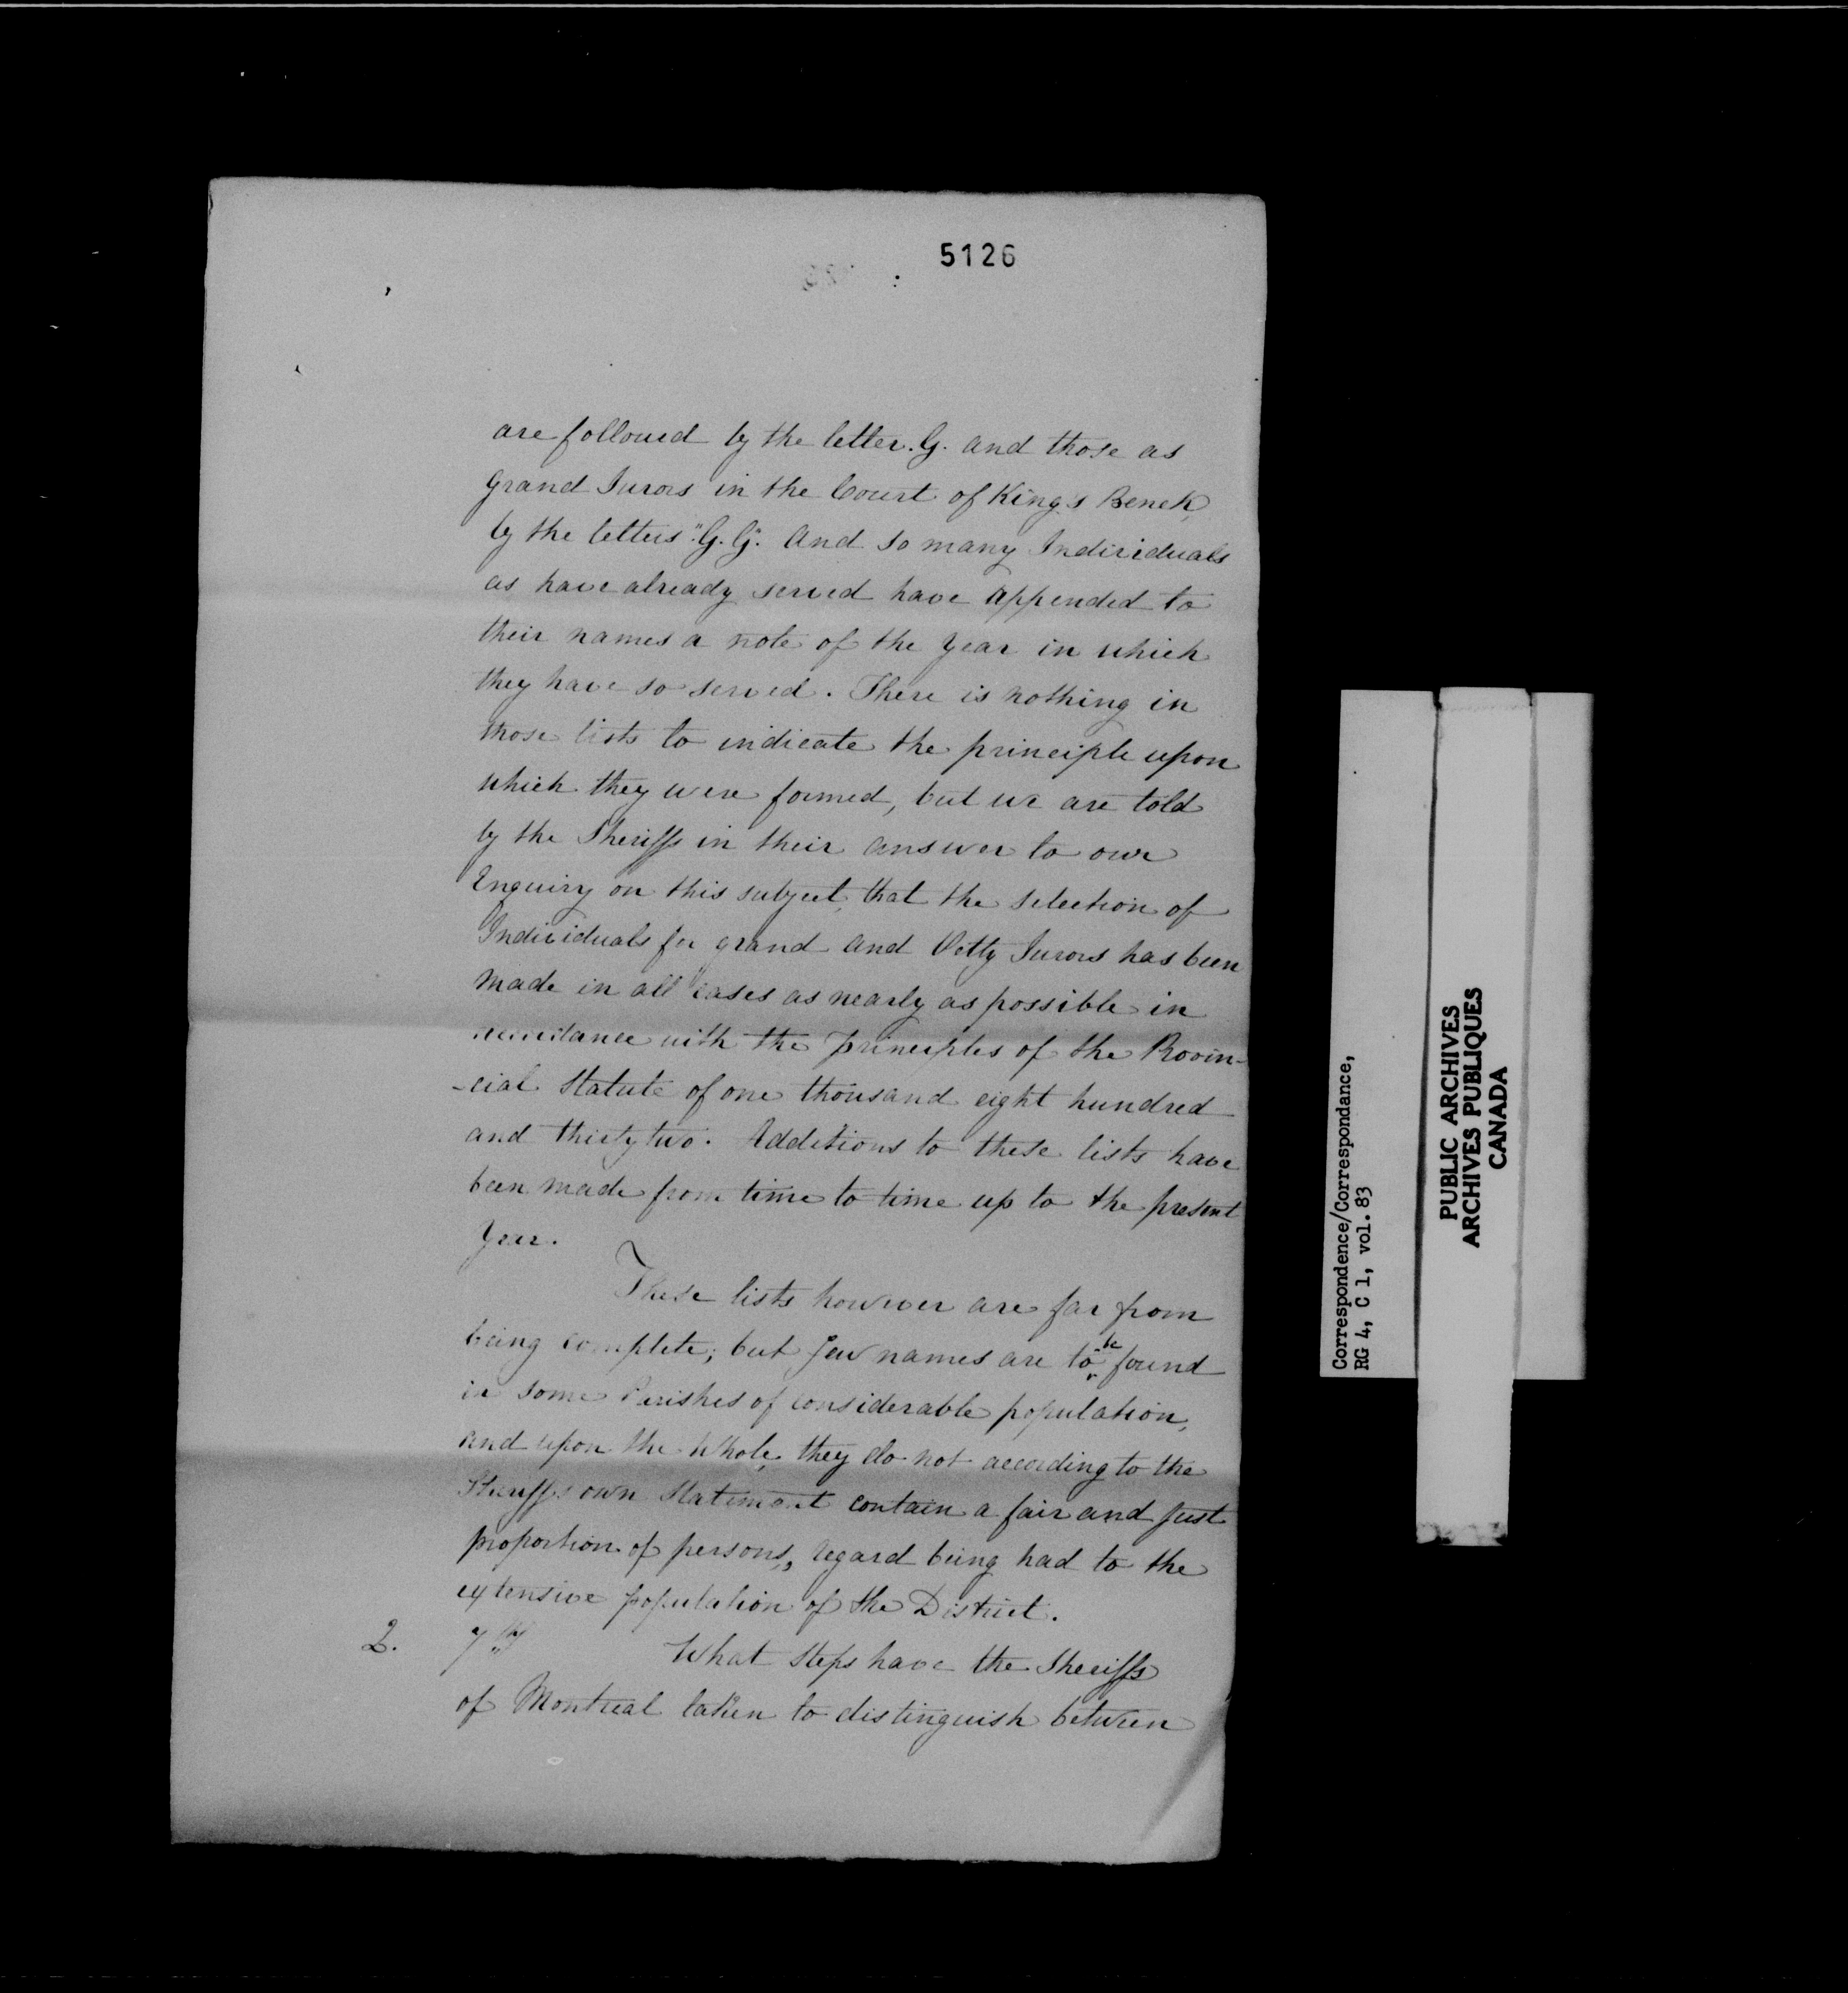 5126
are followed by the letter. G. and those as
grand Jurors in the Court of King's Bench,
by the letters "G. G." and so many Individuals
as have already served have appended to
their names a note of the year in which
they have so served. There is nothing in
those lists to indicate the principle upon
which they were formed, but we are told
by the Sheriffs in their answer to our
Enquiry on this subject, that the selection of
Individuals for grand and Petty Jurors has been
made in all cases as nearly as possible in
with the principles of the Provin-
-cial Statute of one thousand eight hundred
and thirty two. Additions to these lists have
been made from time to time up to the present
year.
These lists however are far from
being complete; but few names are to be found
in some Parishes of considerable population,
and upon the whole, they do not according to the
Sheriffs own Statement contain a fair and just
proportion of persons, regard being had to the
extensive population of the District.
2. 7th What steps have the Sheriffs
of Montreal taken to distinguish between
Correspondence/Correspondance,
RG 4, C 1, vol. 83
PUBLIC ARCHIVES
ARCHIVES PUBLIQUES
CANADA